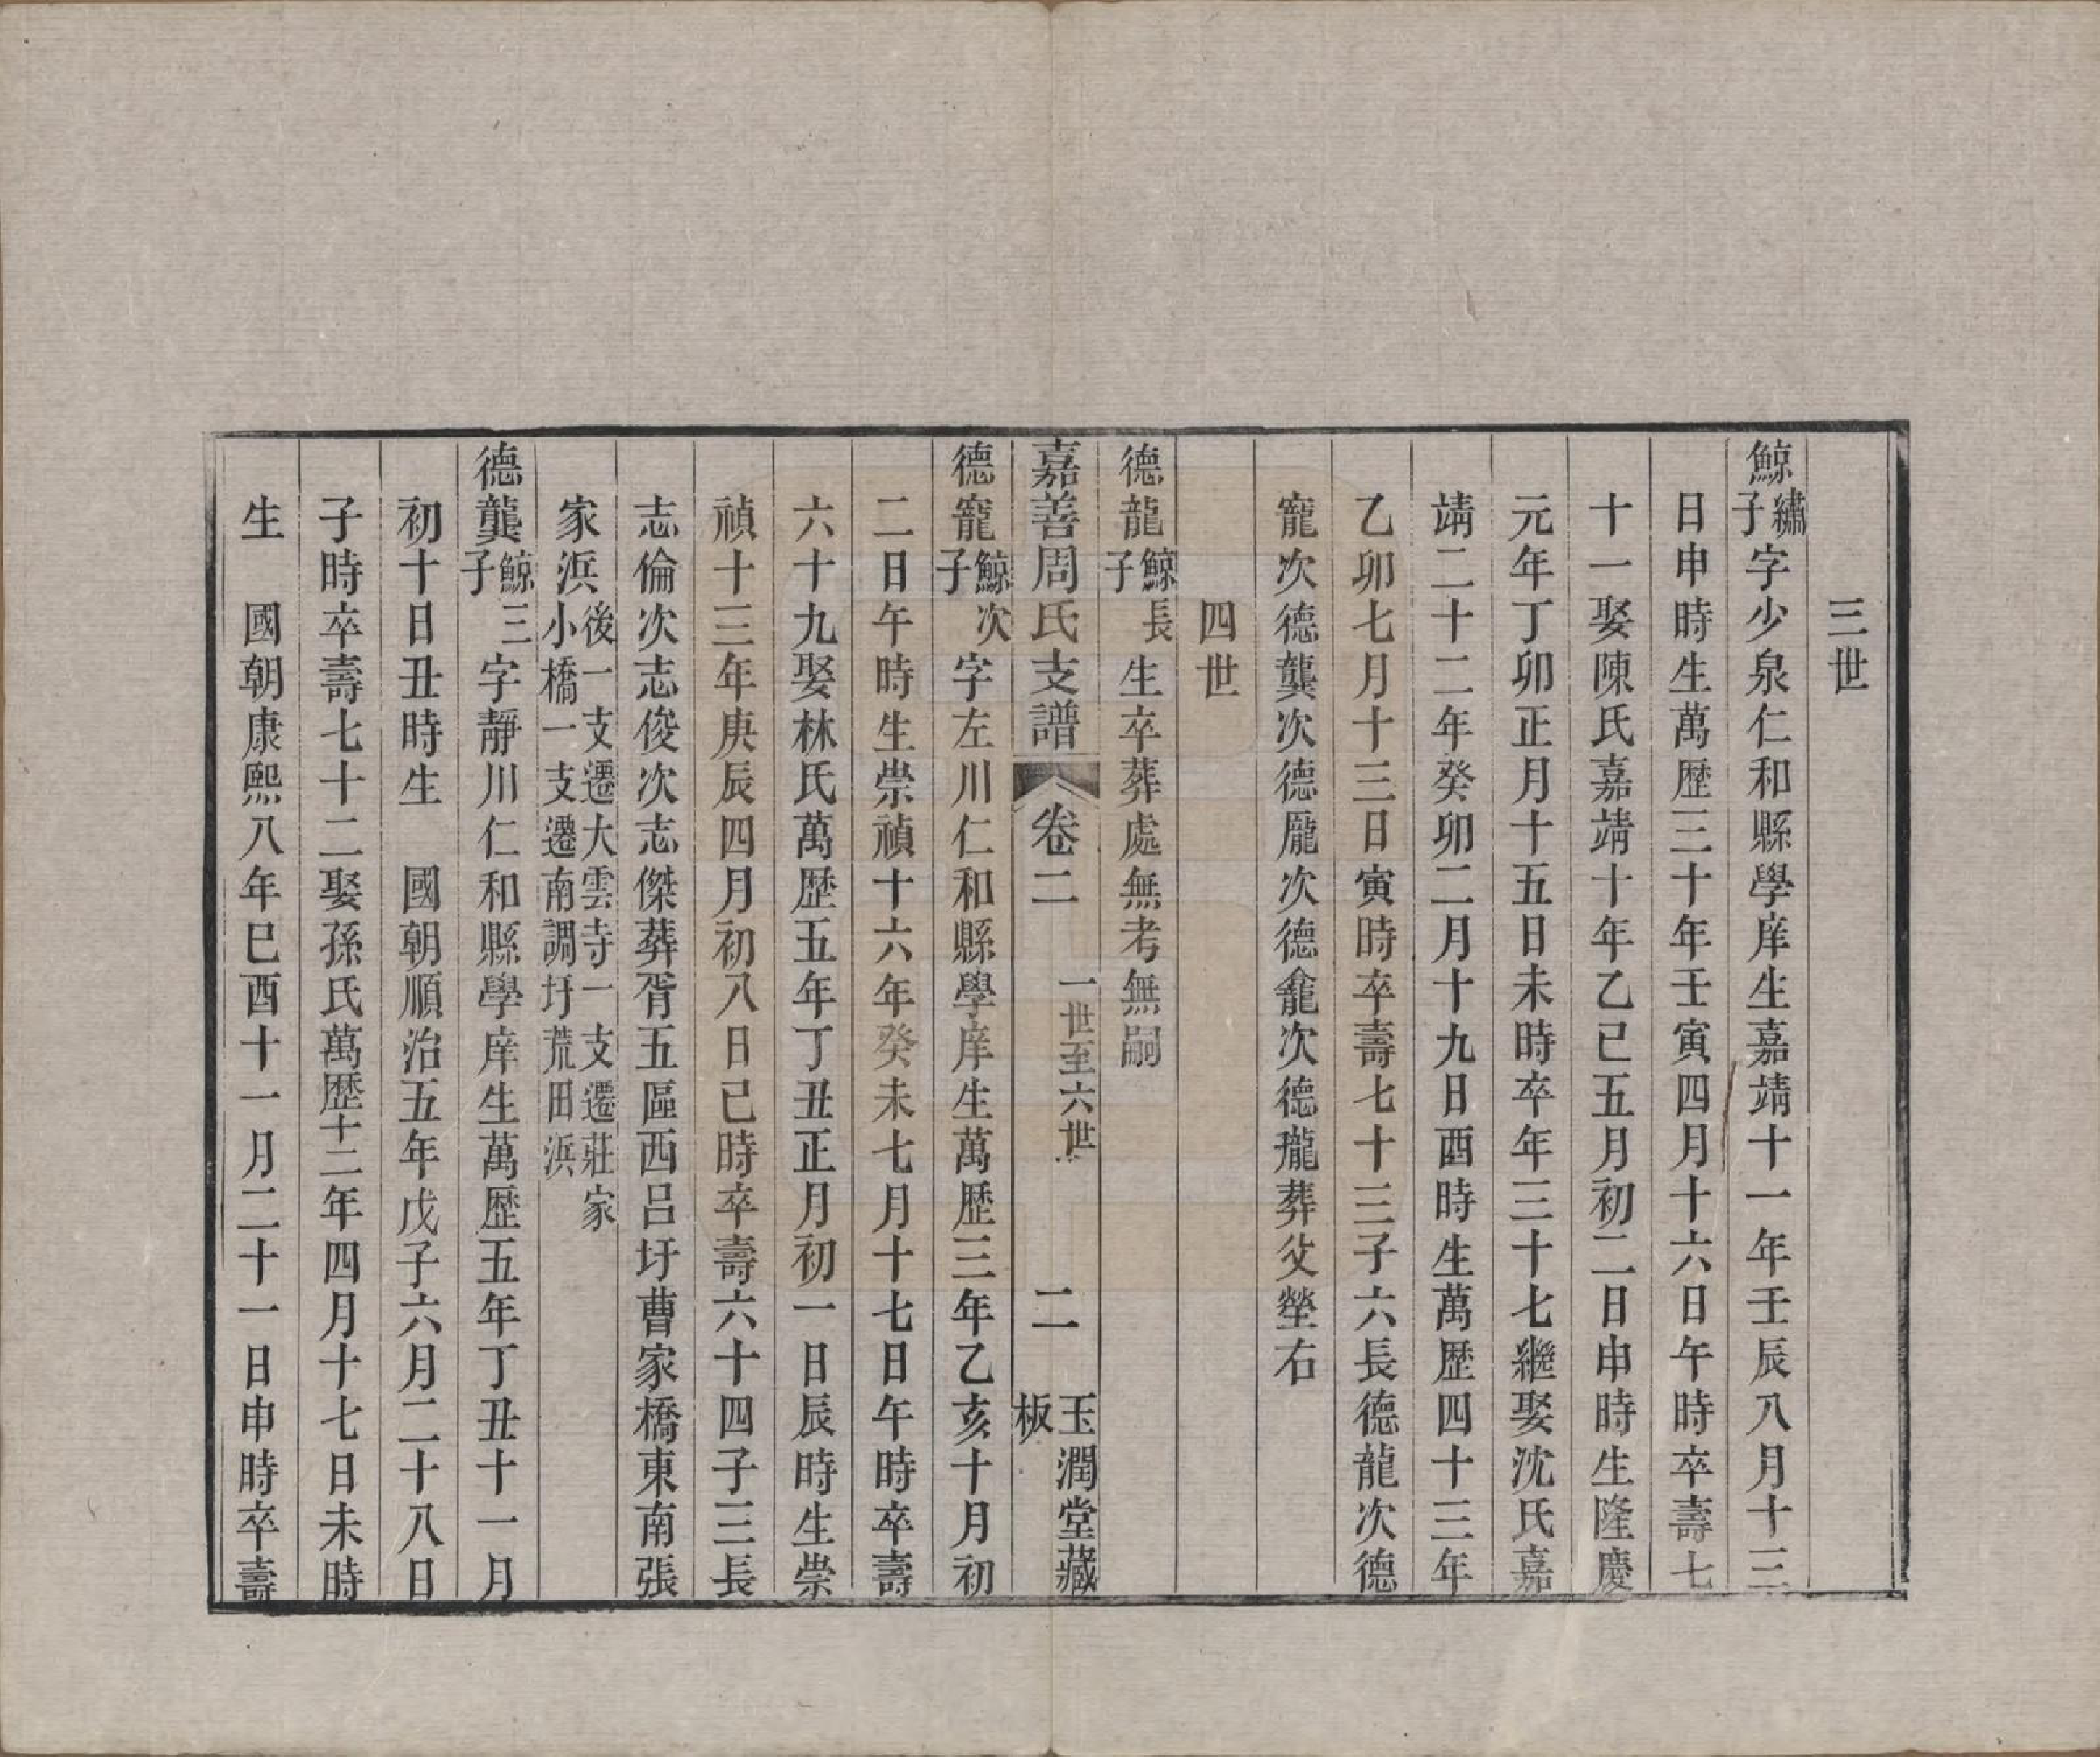 三世
鯨繡子字少泉仁和縣學庠生嘉靖十一年壬辰八月十三
日申時生萬歷三十年壬寅四月十六日午時卒壽七
十一娶陳氏嘉靖十年乙巳五月初二日申時生隆慶
元年丁卯正月十五日未時卒年三十七繼娶沈氏嘉
靖二十二年癸卯二月十九日酉時生萬歷四十三年
乙卯七月十三日寅時卒壽七十三子六長德龍次德
寵次德龔次德龐次德龕次德瓏葬父塋右
四世
德龍鯨長子生卒葬處無考無嗣
嘉善周氏支譜 卷二 一世至六世 二 玉潤堂藏板
德寵鯨次子字左川仁和縣學庠生萬歷三年乙亥十月初
二日午時生崇禎十六年癸未七月十七日午時卒壽
六十九娶林氏萬歷五年丁丑正月初一日辰時生崇
禎十三年庚辰四月初八日巳時卒壽六十四子三長
志倫次志俊次志傑葬胥五區西呂圩曹家橋東南張
家浜後一支遷大雲寺一支遷莊家小橋一支遷南調圩荒田浜
德龔鯨三子字靜川仁和縣學庠生萬歷五年丁丑十一月
初十日丑時生 國朝順治五年戊子六月二十八日
子時卒壽七十二娶孫氏萬歷十二年四月十七日未時
生 國朝康熙八年巳酉十一月二十一日申時卒壽